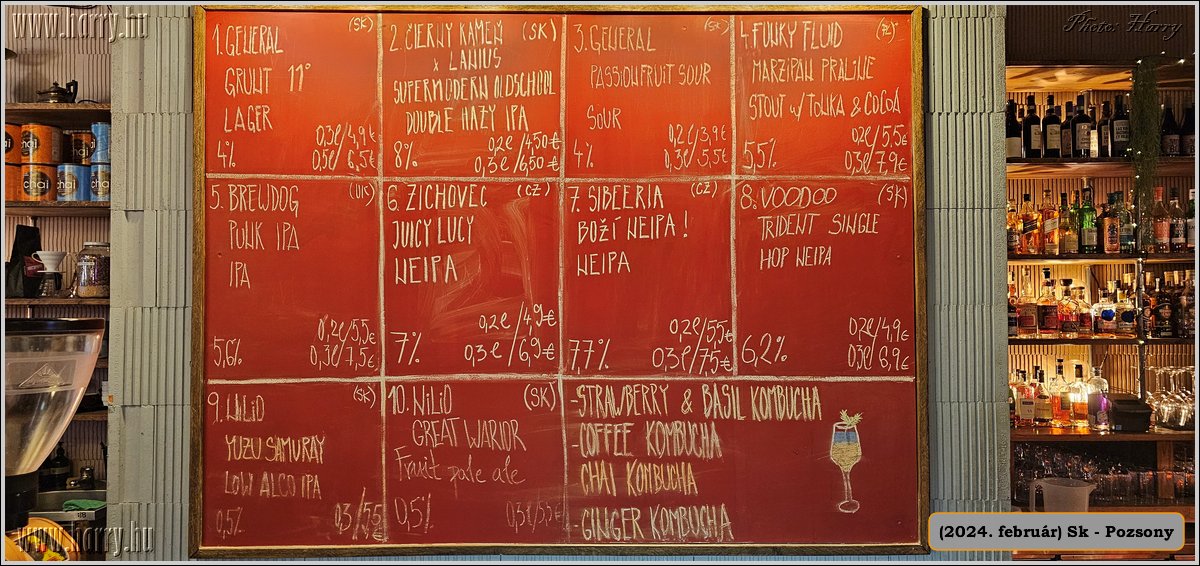 www.harry.hu
Photo: Harry
1. GENERAL (SK)
GRUNT 11°
LAGER
0,3l/4,9€
4% 0,5l/6,5€
2. ČIERNY KAMEŇ (SK)
x LANIUS
SUPERMODERN OLDSCHOOL
DOUBLE HAZY IPA
0,2l/4,50€
8% 0,3l/6,50€
3. GENERAL (SK)
PASSIONFRUIT SOUR
SOUR
0,2l/3,9€
4% 0,3l/5,5€
4. FUNKY FLUID (PL)
MARZIPAN PRALINE
STOUT w/ TONKA & COCOA
0,2l/5,5€
5,5% 0,3l/7,9€
5. BREWDOG
PUNK IPA
IPA
0,2l/5,5€
5,6% 0,3l/7,5€
6. ZICHOVEC (CZ)
JUICY LUCY
NEIPA
0,2l/4,9€
7% 0,3l/6,9€
7. SIBEERIA (CZ)
BOŽÍ NEIPA!
NEIPA
0,2l/5,5€
7,7% 0,3l/7,5€
8. VOODOO (SK)
TRIDENT SINGLE
HOP NEIPA
0,2l/4,9€
6,2% 0,3l/6,9€
9. NILIO (SK)
YUZU SAMURAY
LOW ALCO IPA
0,5% 0,3/5,5
10. NiLiO (SK)
GREAT WARIOR
Fruit pale ale
0,5% 0,3l/5,5€
-STRAWBERRY & BASIL KOMBUCHA
-COFFEE KOMBUCHA
CHAI KOMBUCHA
-GINGER KOMBUCHA
chai
chai
www.harry.hu
www.harry.hu
(2024. február) Sk - Pozsony